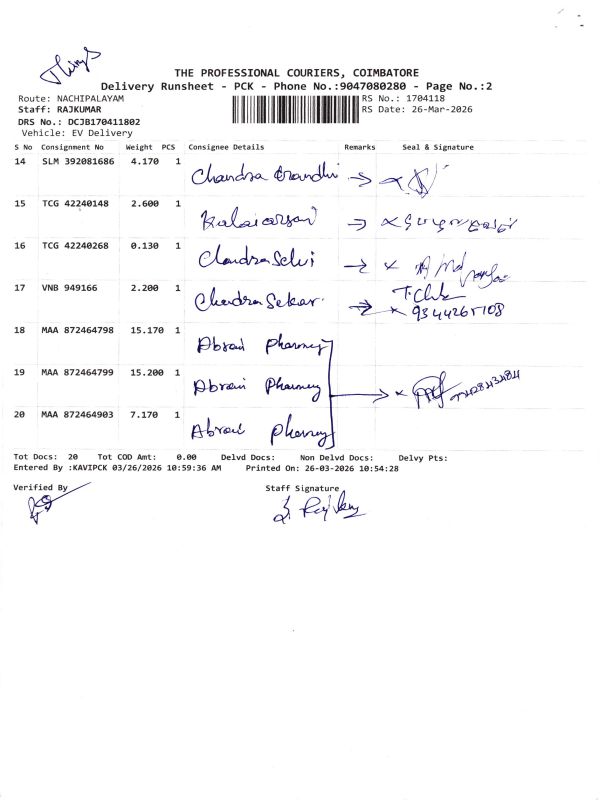 THE PROFESSIONAL COURIERS, COIMBATORE
Delivery Runsheet - PCK - Phone No.:9047080280 - Page No.:2
Route: NACHIPALAYAM RS No.: 1704118
Staff: RAJKUMAR RS Date: 26-Mar-2026
DRS No.: DCJB170411802
Vehicle: EV Delivery
S No Consignment No Weight PCS Consignee Details Remarks Seal & Signature
14 SLM 392081686 4.170 1 Chandra
15 TCG 42240148 2.600 1 Kalaiarsani
16 TCG 42240268 0.130 1 ChandraSelvi
17 VNB 949166 2.200 1 ChandraSekar. 9344265108
18 MAA 872464798 15.170 1 Pharmey
19 MAA 872464799 15.200 1 Pharmey
20 MAA 872464903 7.170 1 Pharmey
Tot Docs: 20 Tot COD Amt: 0.00 Delvd Docs: Non Delvd Docs: Delvy Pts:
Entered By :KAVIPCK 03/26/2026 10:59:36 AM Printed On: 26-03-2026 10:54:28
Verified By Staff Signature